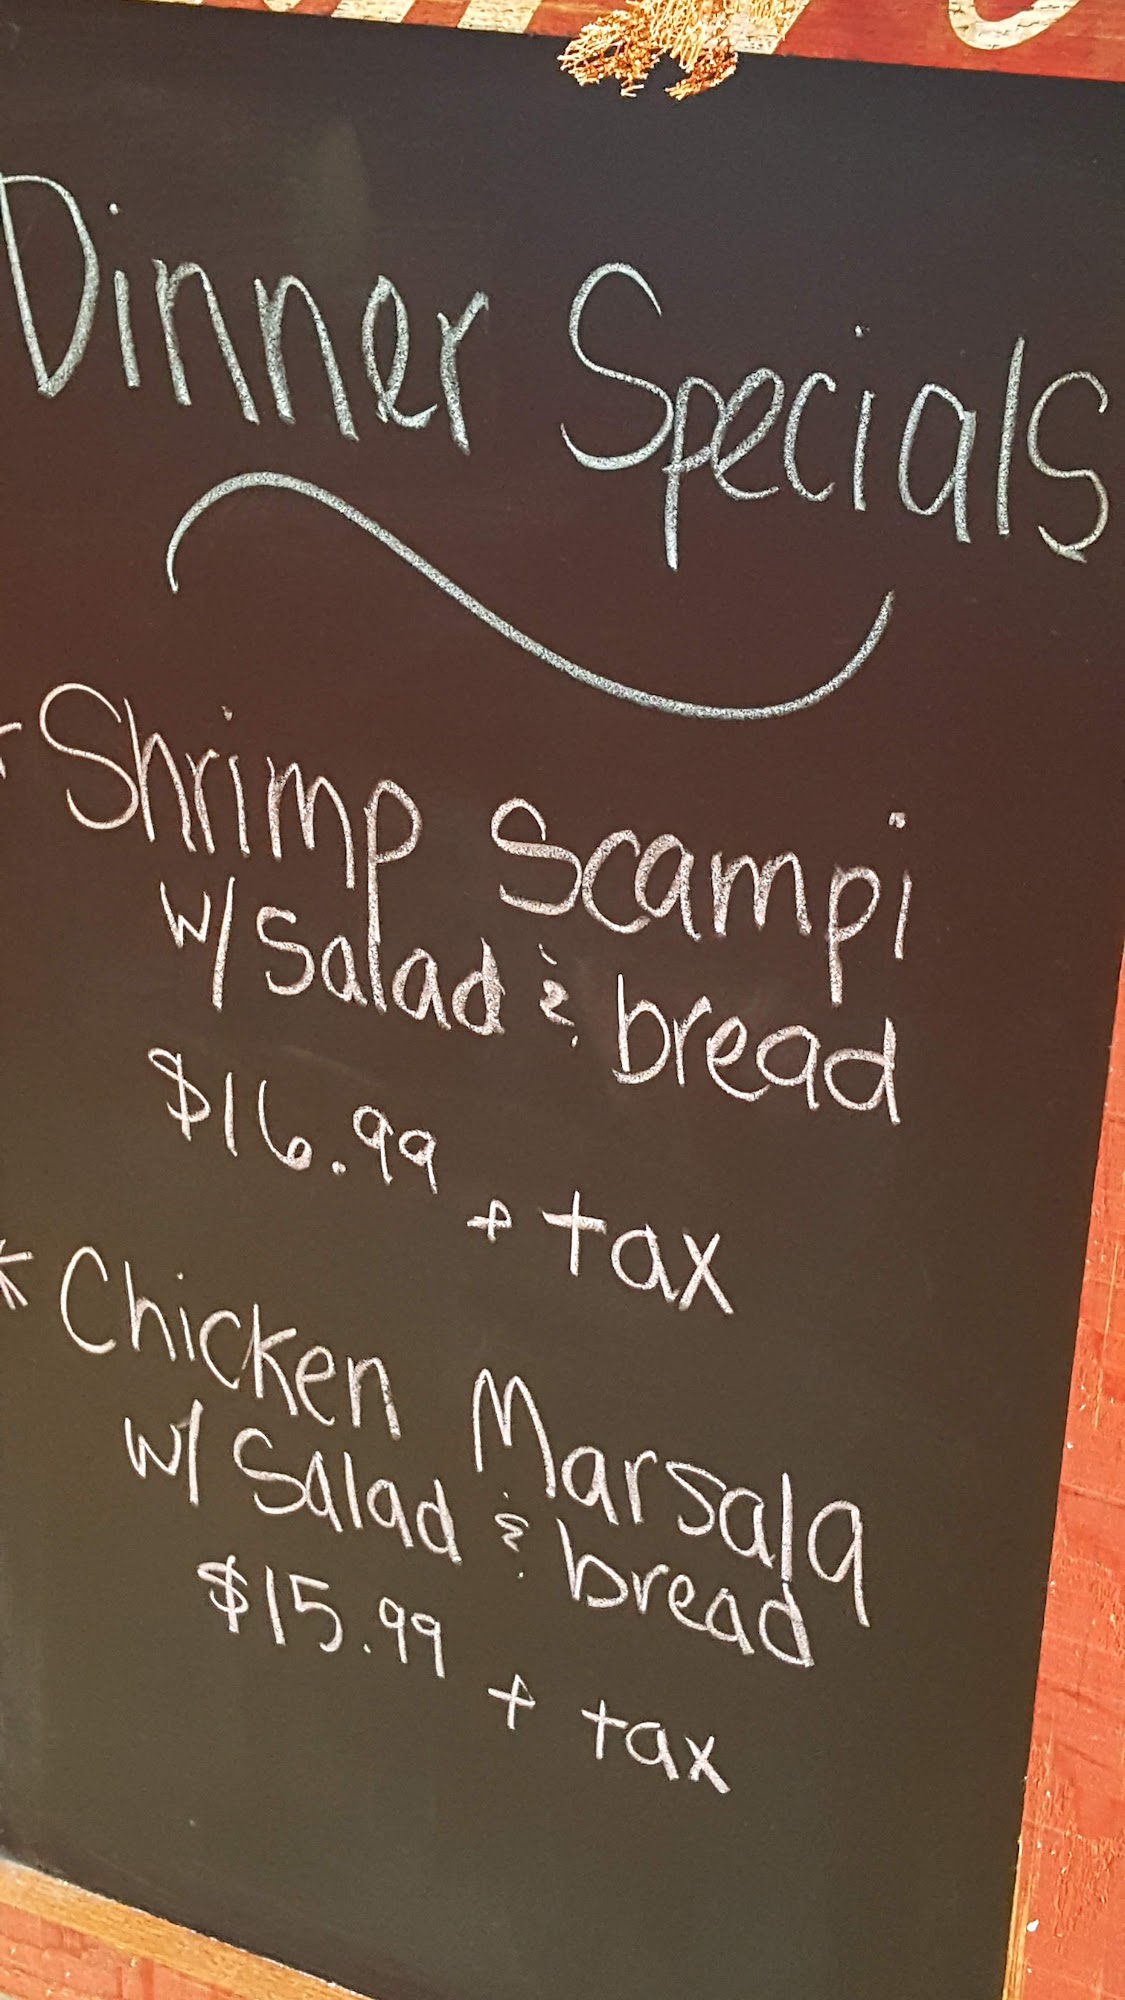 Dinner Specials
* Shrimp Scampi
w/ Salad & bread
$16.99 + tax
* Chicken Marsala
w/ Salad & bread
$15.99 + tax